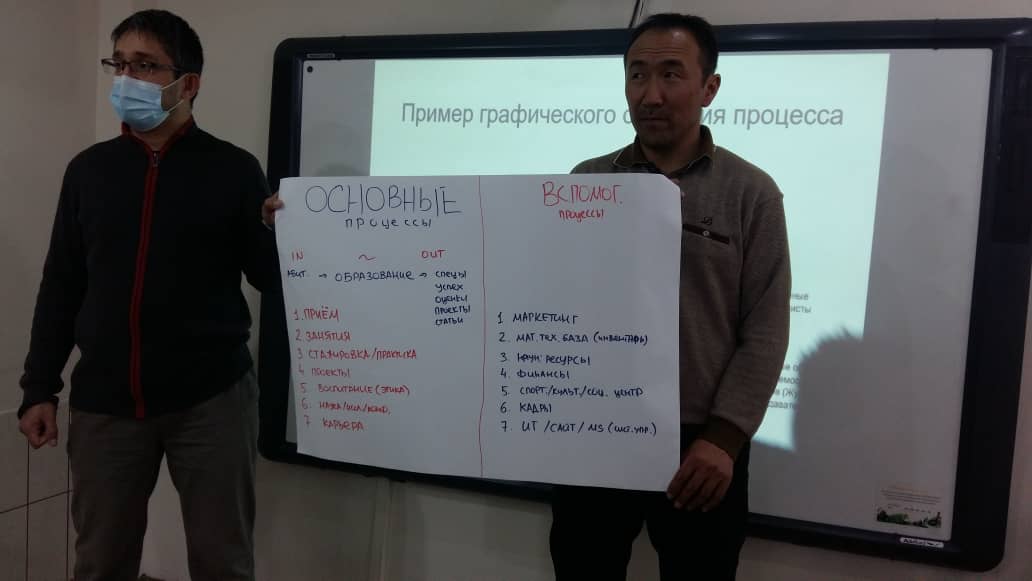 Пример графического процесса
ОСНОВНЫЕ
процессы
IN ~ OUT
АБИТ. → ОБРАЗОВАНИЕ → СПЕЦЫ
УСПЕХ
ОЦЕНКИ
ПРОЕКТЫ
СТАТЬИ
1. ПРИЁМ
2. ЗАНЯТИЯ
3 СТАЖИРОВКА/ПРАКТИКА
4 ПРОЕКТЫ
5 ВОСПИТАНИЕ (ЭТИКА)
6.
7 КАРЬЕРА
ВСПОМОГ.
процессы
1 МАРКЕТИНГ
2. МАТ. ТЕХ. БАЗА (инвентарь)
3. РЕСУРСЫ
4. ФИНАНСЫ
5. СПОРТ./КУЛЬТ./СОЦ. ЦЕНТР
6. КАДРЫ
7. ИТ /САЙТ/ MS